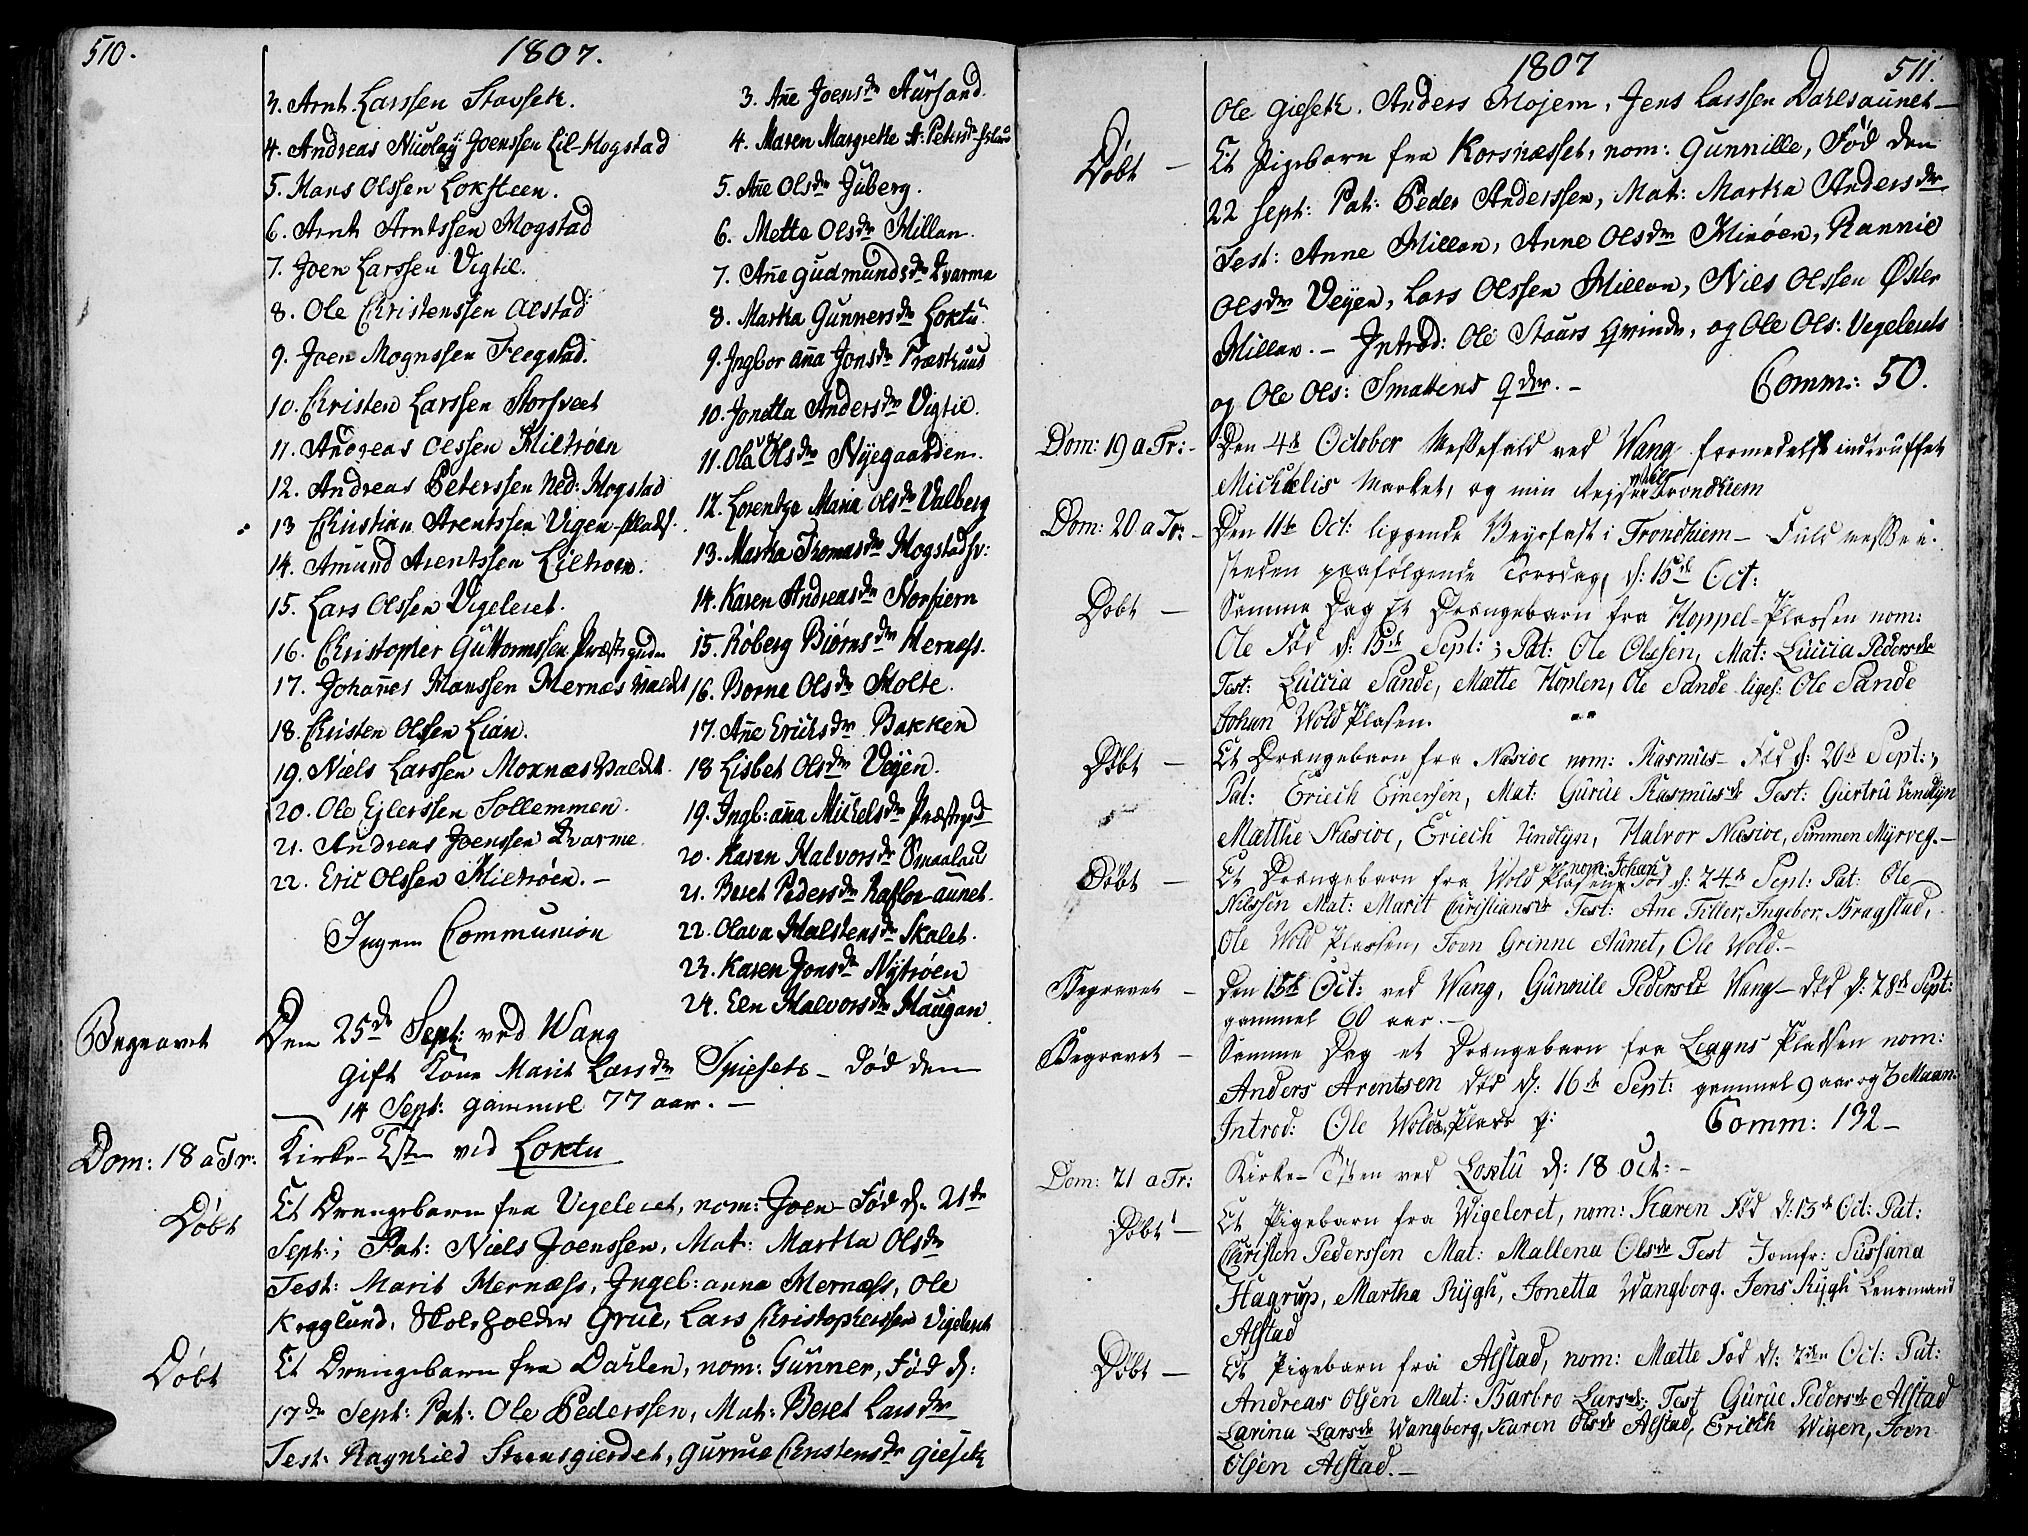 510.
1807.
3. Arnt Larssen Stavsek.
4. Andreas Nicolay Joenssen Lil-Mogstad
5. Hans Olssen Loksteen.
6. Arnt Arntssen Mogstad
7. Joen Larssen Vigtil.
8. Ole Christenssen Alstad
9. Joen Mognssen Flegstad.
10. Christen Larssen Storsveet
11. Andreas Olssen Miltröen
12. Andreas Peterssen Ned: Mogstad
13 Christian Arentssen Vigen-Plads.
14. Amund Arentssen Liltroen.
15. Lars Olssen Vigeleret.
16. Christopher Guttormssen Præstegrden
17. Johañes Hanssen Mernæs Valdet
18. Christen Olssen Lian.
19. Niels Larssen Moxnæs Valdet.
20. Ole Ejlerssen Sollemmen.
21. Andreas Joenssen Qvarme.
22. Eric Olssen Miltröen. -
Ingen Communion
3. Añe Joensdr Aursand.
4. Maren Margrethe A: Petersdr
5. Añe Olsdr Juberg.
6. Metta Olsdr Millan.
7. Añe Gudmundsdr Qvarme
8. Martha Gunnersdr Loktu
9. Ingbor aña Jonsdr Præsthuus
10. Jonetta Andersdr Vigtil.
11. Ola Olsdr Nyegaarden.
12. Lorentza Maria Olsdr Valberg
13. Martha Thomasdr Mogstadsv:
14. Karen Andreasdr Norfiern
15. Röberg Biörnsdr Mernæss.
16. Borne Olsdr Molte.
17. Añe Erichsdr Bakken
18 Lisbet Olsdr Veyen.
19. Ingb: aña Michelsdr Præstegrd
20. Karen Halvorsdr Smaaland
21. Beret Pedersdr Rafloe-aunet.
22. Olava Halstensdr Skalet.
23. Karen Jonsdr Nytröen
24. Elen Halvorsdr Haugan
Begravet Den 25de Sept: ved Wang
Gift Kone Marit Larsdr Spiesets - död den
14 Sept: gammel 77 aar. -
Dom: 18 a Tr: Kirke-Tstn ved Loktu
Döbt Et Drengebarn fra Vigeleret, nom: Joen - Föd d: 21de
Sept:; Pat: Niels Joenssen, Mat: Martha Olsdr
Test: Marit Mernæss, Ingeb: anna Mernæss, Ole
Kroglund, Skoleholder Grue, Lars Christopherssen Vigeleret
Döbt Et Drengebarn fra Dahlen, nom: Gunner, Föd d:
17de Sept: Pat: Ole Pederssen, Mat: Beret Larsdr
Test: Ragnhild Steensgierdet, Gurue Christensdr Giesek
1807
511.
Ole Giesek. Anders Mojem, Jens Larssen Dahlsaunet -
Döbt - Et Pigebarn fra Korsnæsset, nom: Gunnille, Föd den
22 Sept: Pat: Peder Anderssen, Mat: Martha Andersdr
Test: Anne Millan, Anne Olsdr Miröen, Rannie
Olsdr Veyen, Lars Olssen Millan, Niels Olssen Öster
Millan. - Introd: Ole Staars Qvinde, og Ole Ols: Vegelerets
og Ole Ols: Smattens qder. - Comm: 50.
Dom: 19 a Tr: - Den 4de October Messefald ved Wang formedelst indtruffet
Michælis Market, og min Rejse til Trondhiem
Dom: 20 a Tr: - Den 11te Oct: liggende Veyrfast i Trondhiem - Fuld Messe i
steden paafölgende Torsdag, d: 15de Oct:
Döbt - Samme Dag Et Drængebarn fra Hoppel-Plassen nom:
Ole Föd d: 15de Sept:; Pat: Ole Olessen, Mat: Luccia Pedersdr
Test: Luccia Sande, Mætte Hoplen, Ole Sande liges: Ole Sande
Johan Wold Plasen.
Döbt - Et Drængebarn fra Næsioe nom: Rasmus - Föd d: 20de Sept:;
Pat: Eriech Einersen, Mat: Gurue Rasmusdr Test: Giertru Undlyn
Matthe Næsioe, Eriech Undlyn, Halvor Næsioe, Simmen Myrveg. -
Döbt - Et Drængebarn fra Wold Plasen nom: Johan, Föd d: 24de Sept: Pat: Ole
Nilssen Mat: Marit Christiansdr Test: Ane Tiller, Ingebor Bragstad,
Ole Wold Plassen, Joen Grinne Aunet, Ole Wold. -
Begravet - Den 15de Oct: ved Wang, Gunnile Pedersdr Wang - död d: 28de Sept:
gammel 60 aar. -
Begravet - Samme Dag et Drængebarn fra Leagns Pladsen nom:
Anders Arentsen död d: 16de Sept: gammel 9 aar og 6 Maan:
Introd: Ole Wolds Plads q: Comm: 132 -
Dom: 21 a Tr: Kirke-Tsten ved Loktu d: 18 Oct: -
Döbt - Et Pigebarn fra Wigeleret, nom: Karen Föd d: 13de Oct: Pat:
Christen Pederssen Mat: Mallena Olsdr Test Jomfr: Sussana
Hagrup, Martha Rygh, Jonetta Wangberg. Jens Rygh Lensmand
Alstad
Döbt - Et Pigebarn fra Alstad, nom: Mætte Föd d: 7de Oct: Pat:
Andreas Olsen Mat: Barbro Larsdr; Test Gurue Pedersdr Alstad
Larina Larsdr Wangberg, Karen Olsdr Alstad, Eriech Wigen, Joen
Olsen Alstad. -